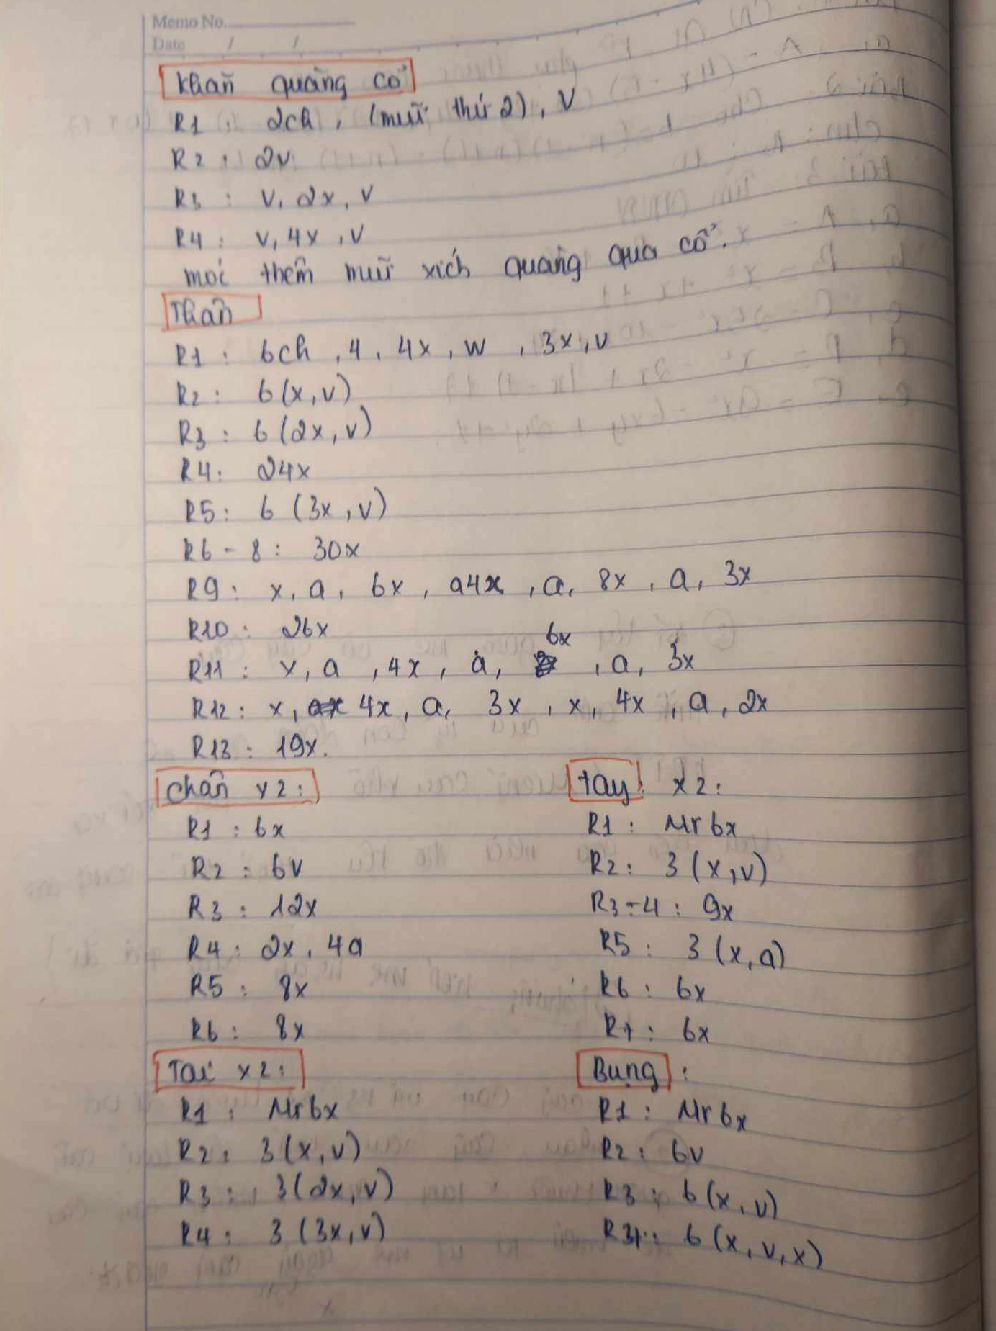 Memo No.
Date / /
Khăn quàng cổ
R1 2ch, (mũi thứ 2), V
R2: 2v
R3: v, 2x, v
R4: v, 4x, v
móc thêm mũi xích quàng qua cổ.
Thân
R1: 6ch, 4, 4x, w, 3x, v
R2: 6(x,v)
R3: 6(2x,v)
R4: 24x
R5: 6 (3x,v)
R6-8: 30x
R9: x, a, 6x, a4x, a, 8x, a, 3x
R10: 26x
R11: x, a, 4x, a, 6x, a, 3x
R12: x, 4x, a, 3x, x, 4x, a, 2x
R13: 19x.
Chân x2:
R1: 6x
R2: 6v
R3: 12x
R4: 2x, 4a
R5: 8x
R6: 8x
tay x2:
R1: Mr6x
R2: 3 (x,v)
R3-4: 9x
R5: 3 (x,a)
R6: 6x
R7: 6x
Tai x2:
R1: Mr6x
R2: 3(x,v)
R3: 3(2x,v)
R4: 3 (3x,v)
Bụng:
R1: Mr6x
R2: 6v
R3: 6(x,v)
R4: 6(x,v,x)